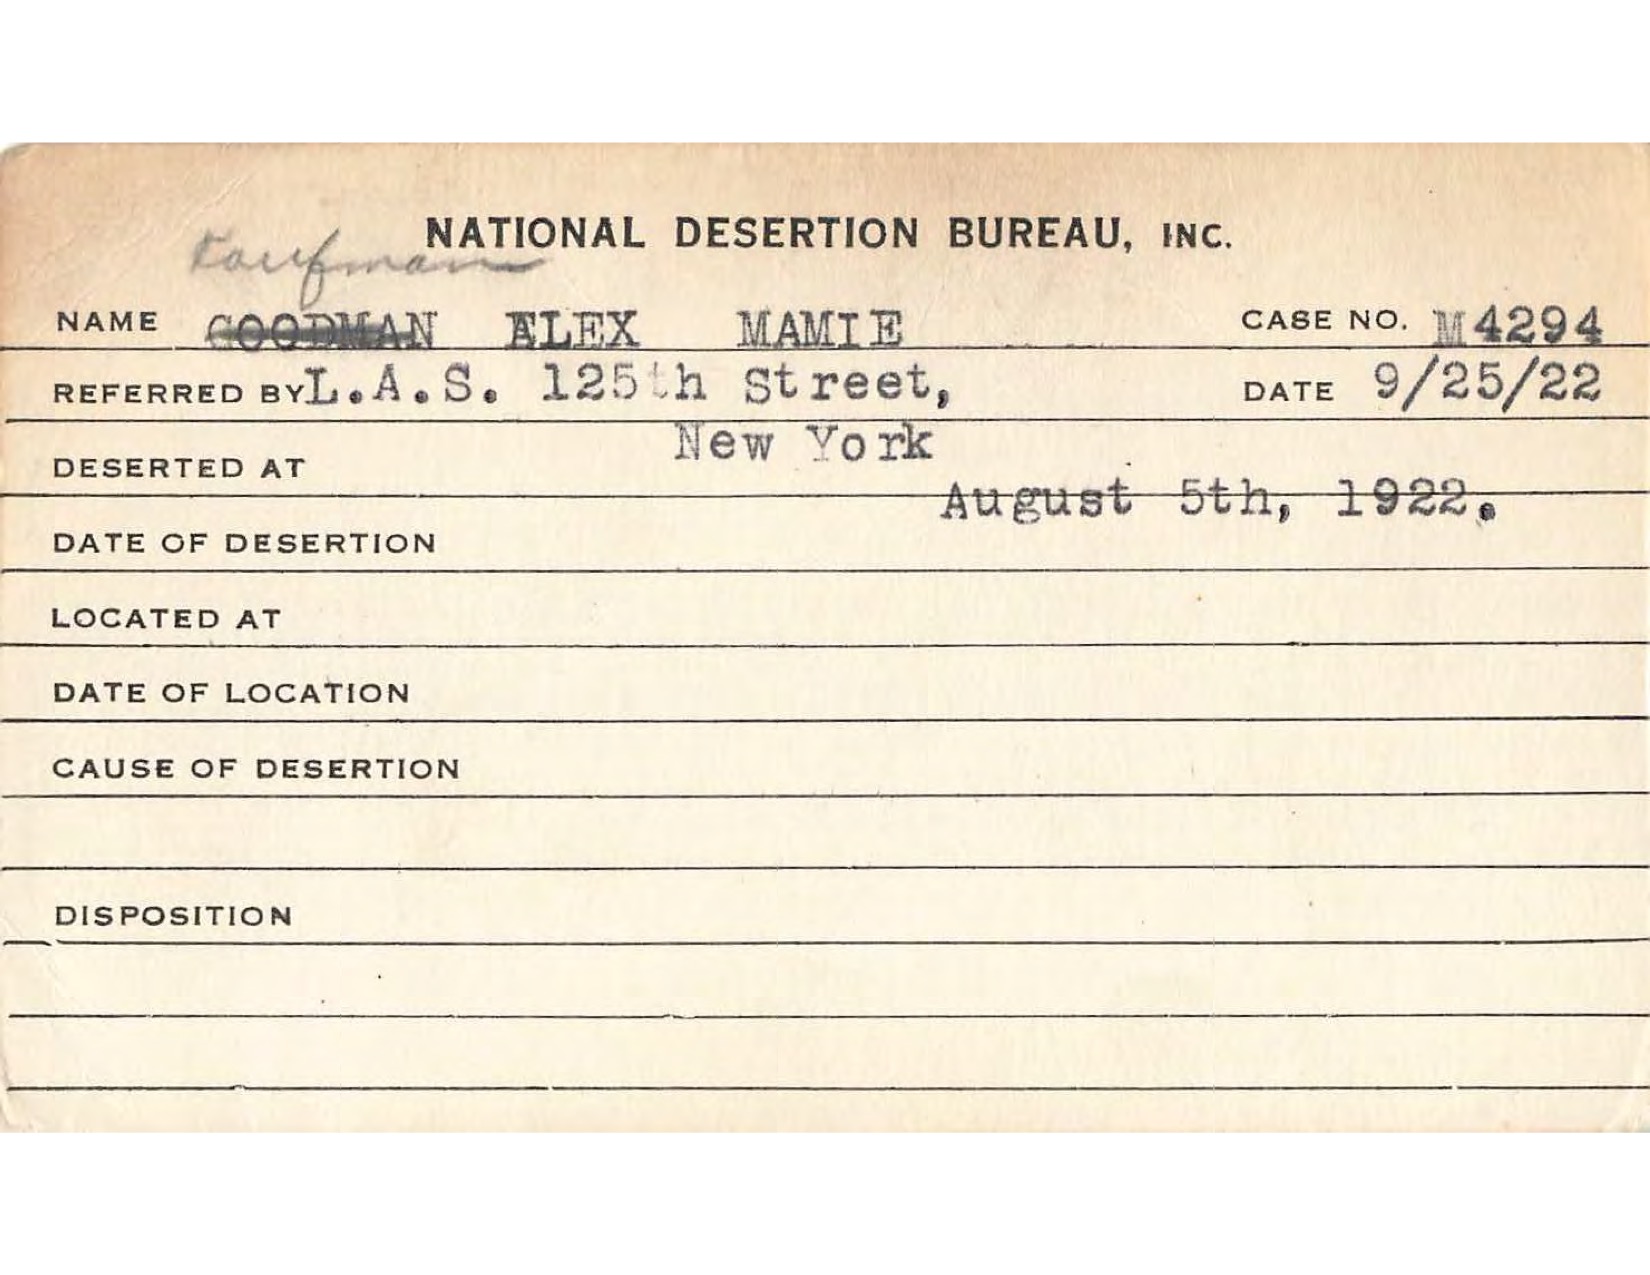 NATIONAL DESERTION BUREAU, INC.
Kaufman
NAME GOODMAN ALEX MAMIE CASE NO. M4294
REFERRED BY L.A.S. 125th Street, DATE 9/25/22
DESERTED AT New York
DATE OF DESERTION August 5th, 1922.
LOCATED AT
DATE OF LOCATION
CAUSE OF DESERTION
DISPOSITION